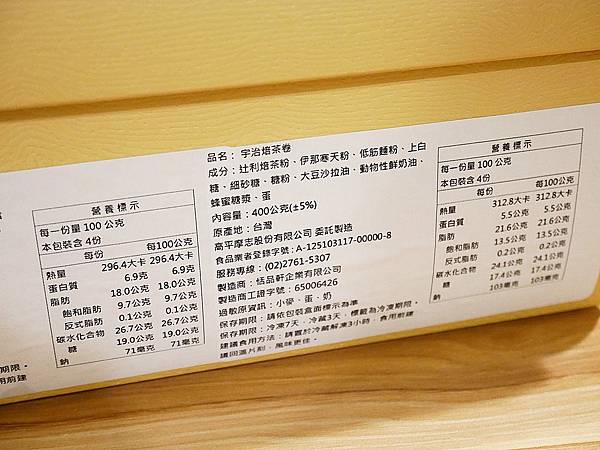 期限。
用前建
營養標示
每一份量 100 公克
本包裝含 4份
每份 每100公克
熱量 296.4大卡 296.4大卡
蛋白質 6.9克 6.9克
脂肪 18.0公克 18.0公克
飽和脂肪 9.7公克 9.7公克
反式脂肪 0.1公克 0.1公克
碳水化合物 26.7公克 26.7公克
糖 19.0公克 19.0公克
鈉 71毫克 71毫克
品名： 宇治焙茶卷
成分：辻利焙茶粉、伊那寒天粉、低筋麵粉、上白
糖、細砂糖、糖粉、大豆沙拉油、動物性鮮奶油、
蜂蜜糖漿、蛋
內容量：400公克(±5%)
原產地：台灣
高平摩志股份有限公司 委託製造
食品業者登錄字號：A-125103117-00000-8
服務專線：(02)2761-5307
製造商：恬品軒企業有限公司
製造商工證字號：65006426
過敏原資訊：小麥、蛋、奶
保存期限：請依包裝盒面標示為準
保存期限：冷凍7天，冷藏3天，標籤為冷凍期限。
建議食用方法：請置於冷藏解凍3小時，食用前建
議回溫片刻，風味更佳。
營養標示
每一份量 100 公克
本包裝含 4份
每份 每100公克
熱量 312.8大卡 312.8大卡
蛋白質 5.5公克 5.5公克
脂肪 21.6公克 21.6公克
飽和脂肪 13.5公克 13.5公克
反式脂肪 0.2公克 0.2公克
碳水化合物 24.1公克 24.1公克
糖 17.4公克 17.4公克
鈉 103毫克 103毫克